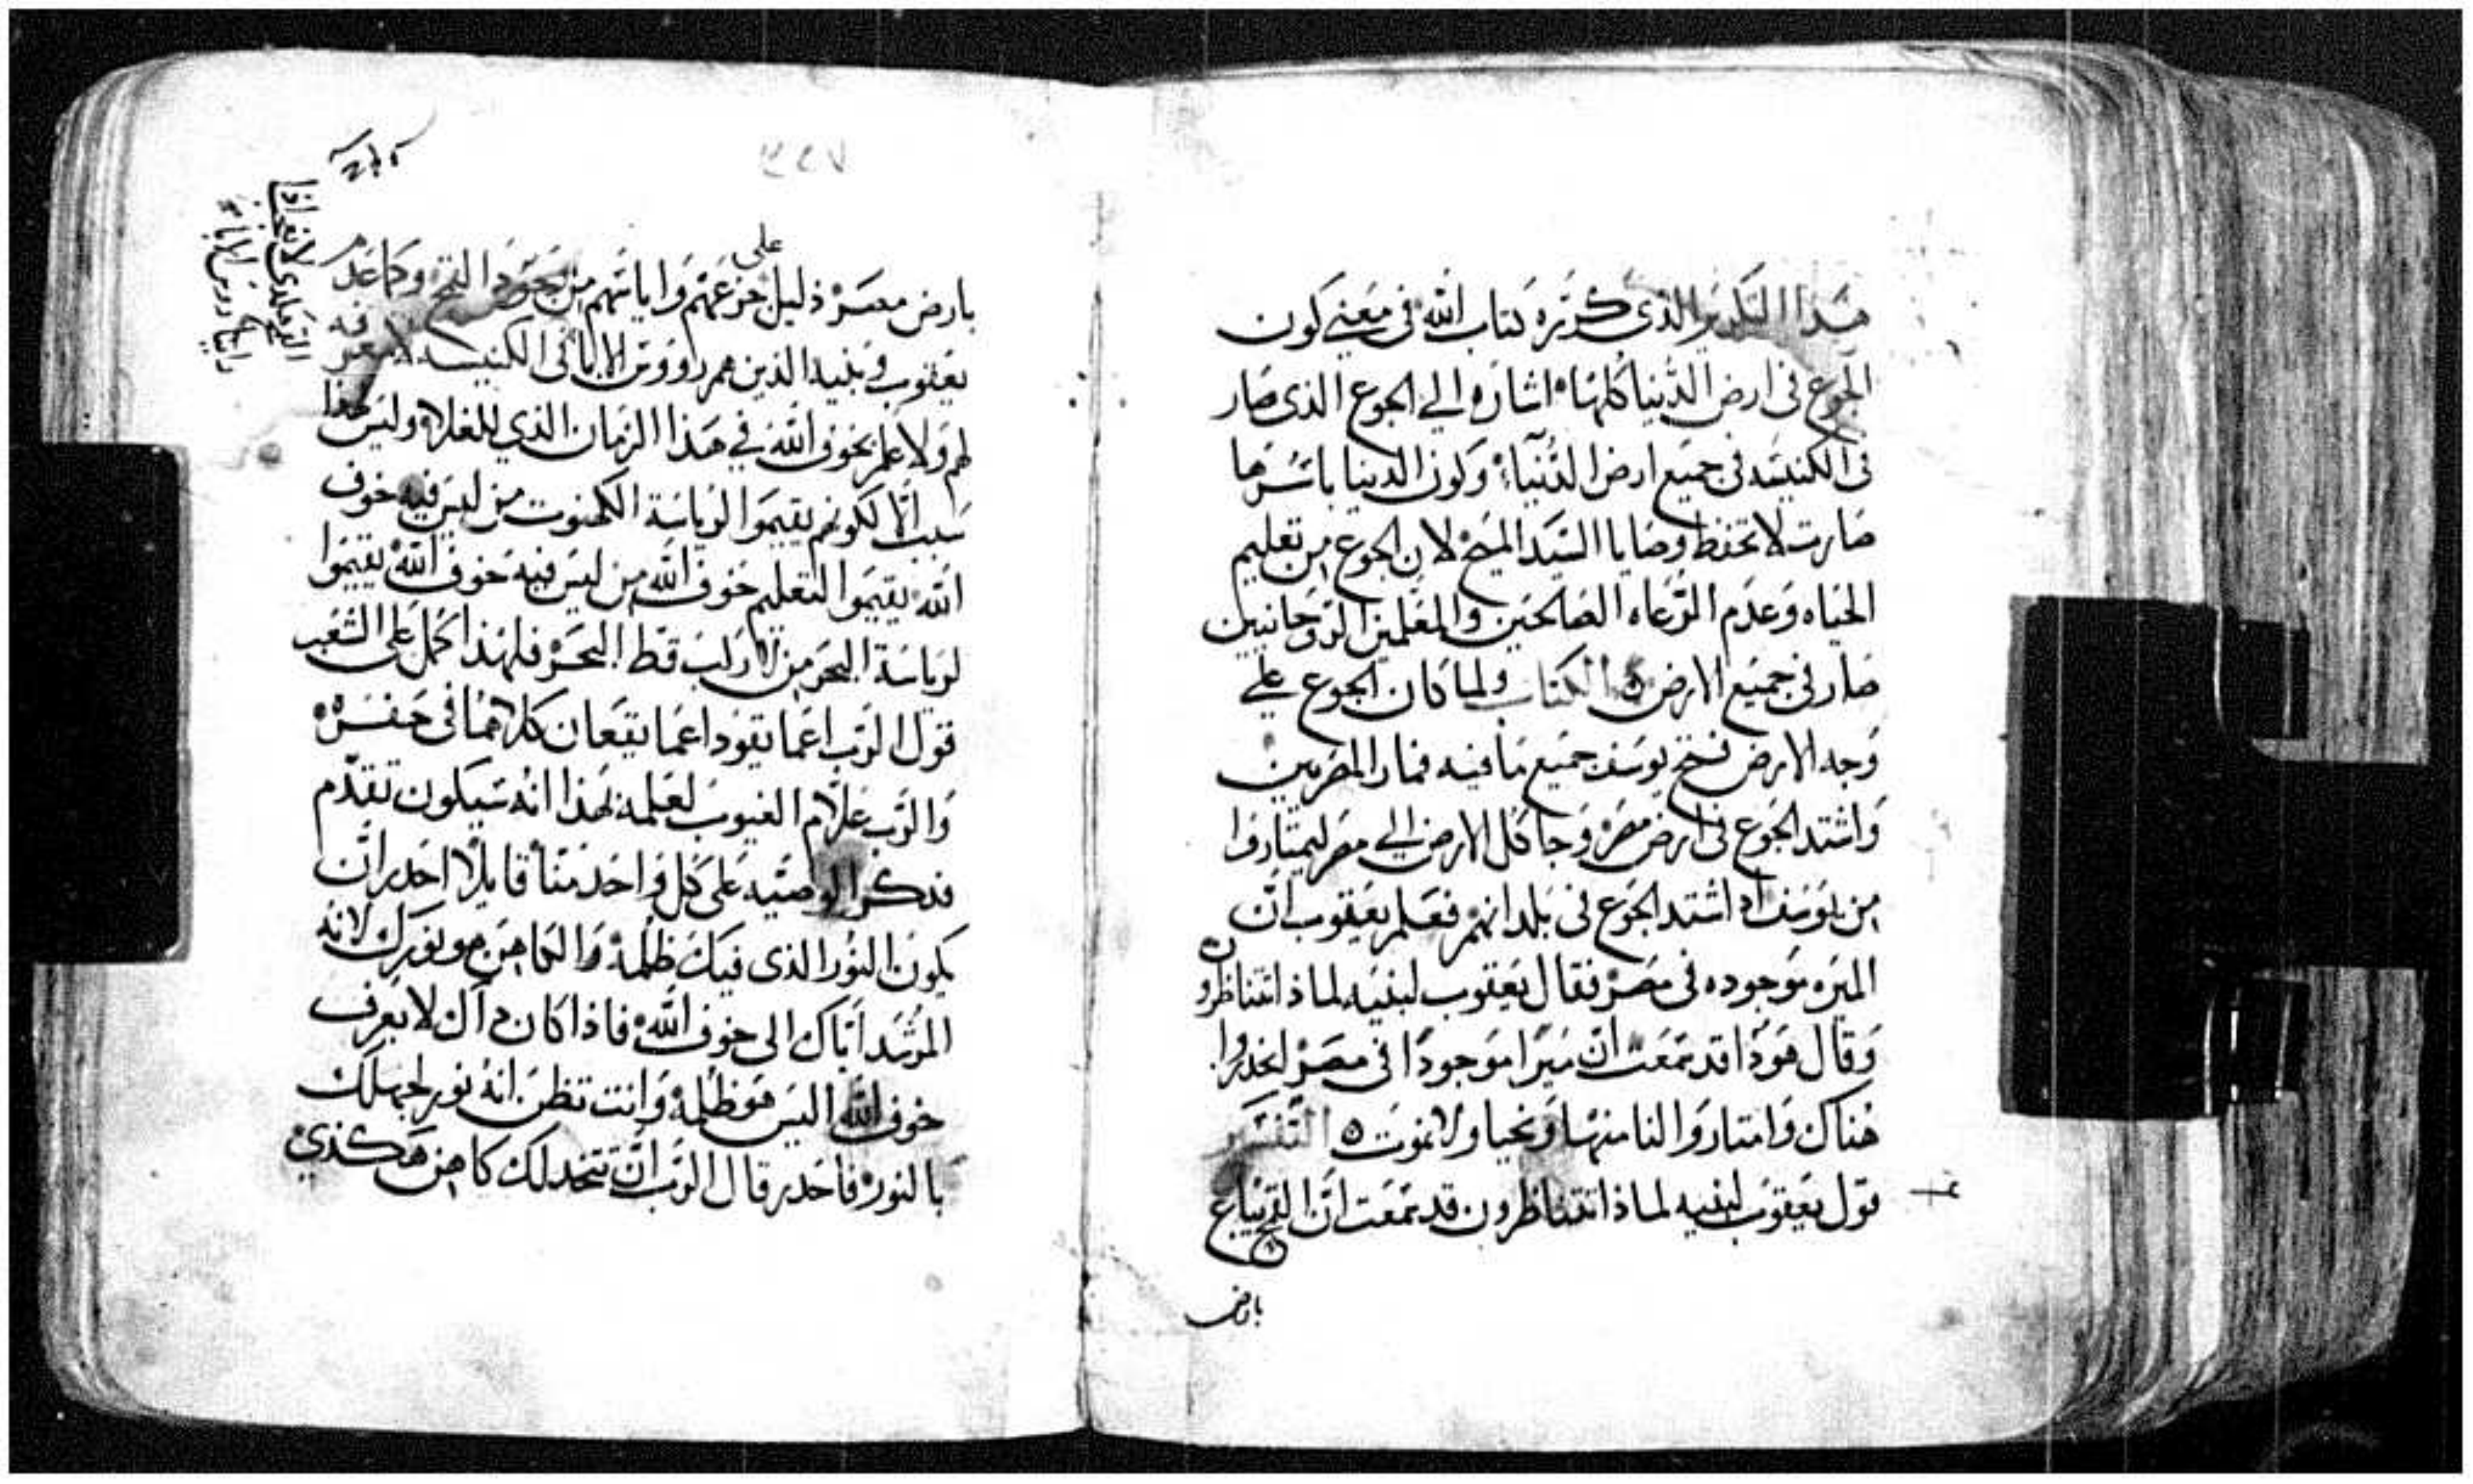 هذا التكرير الذى كرره كتاب الله فى معنى كون
الجوع فى ارض الدنيا كلها اشاره الى الجوع الذى صار
فى الكنيسه فى جميع ارض الدنيا وكون الدنيا باسرها
صارت لا تحفظ وصايا السيد المسيح لان الجوع من تعليم
الحياه وعدم الرعاه الصالحين والمعلمين الروحانيين
صار فى جميع الارض الكتاب ولما كان الجوع على
وجه الارض فتح يوسف جميع ما فيه فمار المصريين
واشتد الجوع فى ارض مصر وجا كل الارض الى مصر ليمتاروا
من يوسف اد اشتد الجوع فى بلدانهم فعلم يعقوب ان
الميره موجوده فى مصر فقال يعقوب لبنيه لماذا تتناظرون
وقال هودا قد سمعت ان ميرا موجودا فى مصر انحدروا
هناك وامتاروا لنا منها ونحيا ولا نموت ه التفسير
قول يعقوب لبنيه لماذا تتناظرون قد سمعت ان القمح يباع
بارض
٣٤٧
على
بارض مصر ذليل جزعهم واياسهم من القمح وكما عدم
يعقوب وبنيه الذين هم رووس الابا فى الكنيسه لا معرفه
لهم ولا علم بخوف الله فى هذا الزمان الذي للغلا وليس لهذا
سبب الا لكونهم يقيموا لرياسة الكهنوت من ليس فيه خوف
الله يقيموا لتعليم خوف الله من ليس فيه خوف الله يقيموا
لرياسة البحر من لا ركب قط البحر فلهذا كمل على الشعب
قول الرب اعما يقود اعما يقعان كلاهما فى حفره
والرب علام الغيوب لعلمه بهذا انه سيكون تقدم
فذكر الوصيه على كل واحد منا قايلا احدر ان
يكون النور الذى فيك ظلمه والكاهن هو نورك لانه
المرشد اياك الى خوف الله فاذا كان داك لا يعرف
خوف الله اليس هو ظلمه وانت تظن انه نور لجهلك
بالنور فاحدر قال الرب ان تتخد لك كاهن هكذي